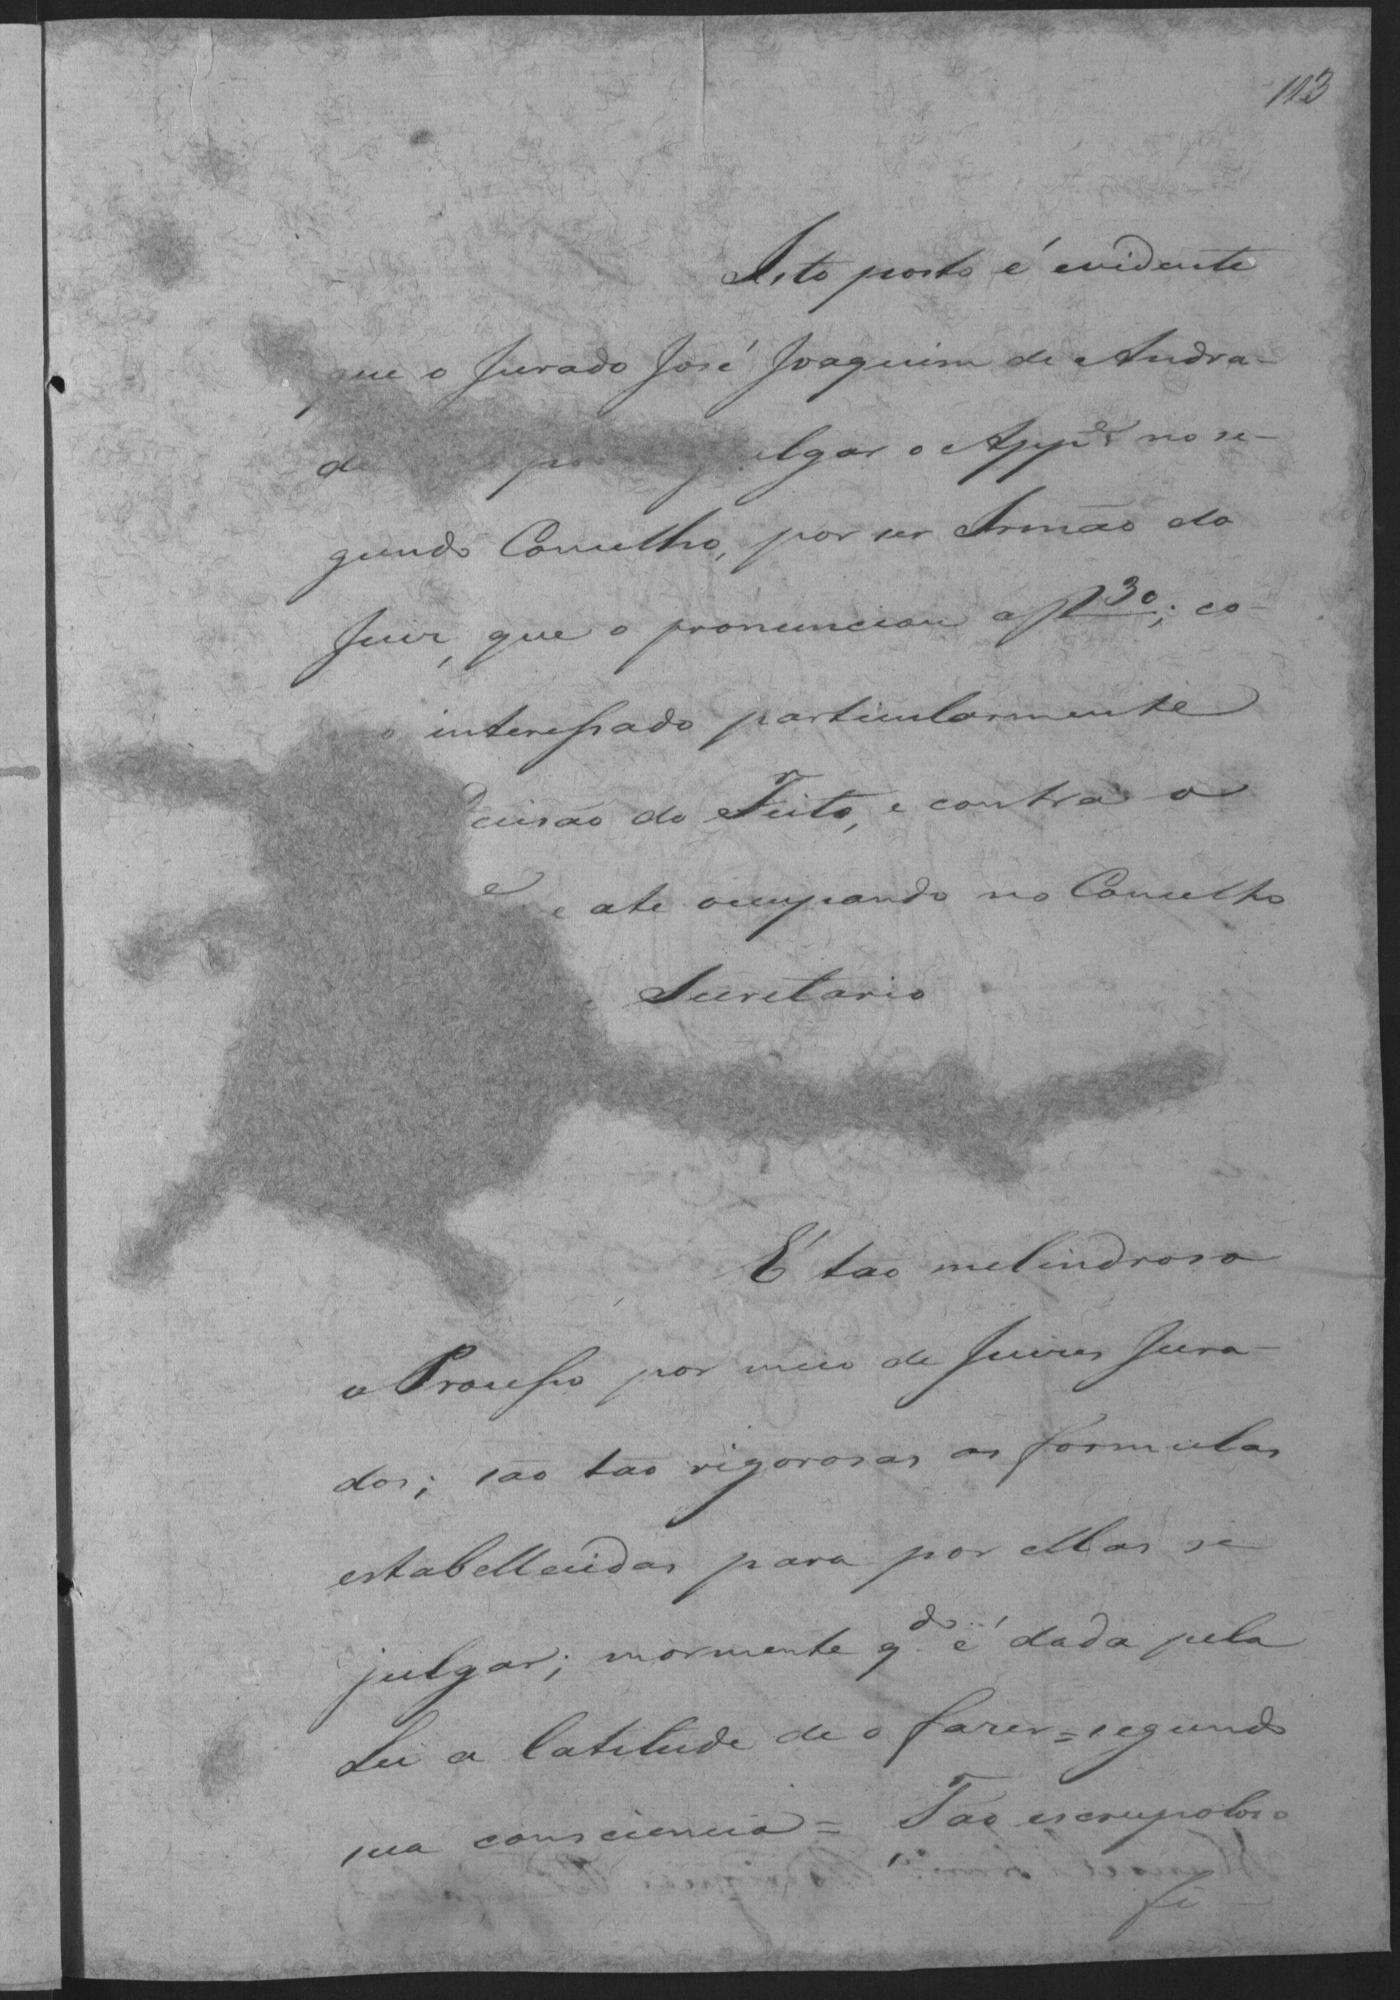 113
Isto posto é evidente
que o Jurado José Joaquim de Andra-
de julgar o Appe no se-
gundo Concelho, por ser Irmão do
Juiz, que o pronunciou a f 30; co-
o interessado particularmente
cisão do Feito, e contra o
e até ocupando no Concelho
Secretario
É tão melindroso
o Processo por meio de Juizes Jura-
dos; são tão rigorosas as formulas
estabellecidas para por ellas se
julgar; mormente qdo é dada pela
Lei a latitude de o fazer = segundo
sua consciencia = Tão escrupoloso